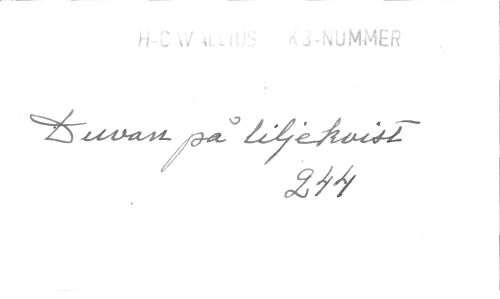 H-CAVALLIUS KB-NUMMER
Duvan på liljekvist
244